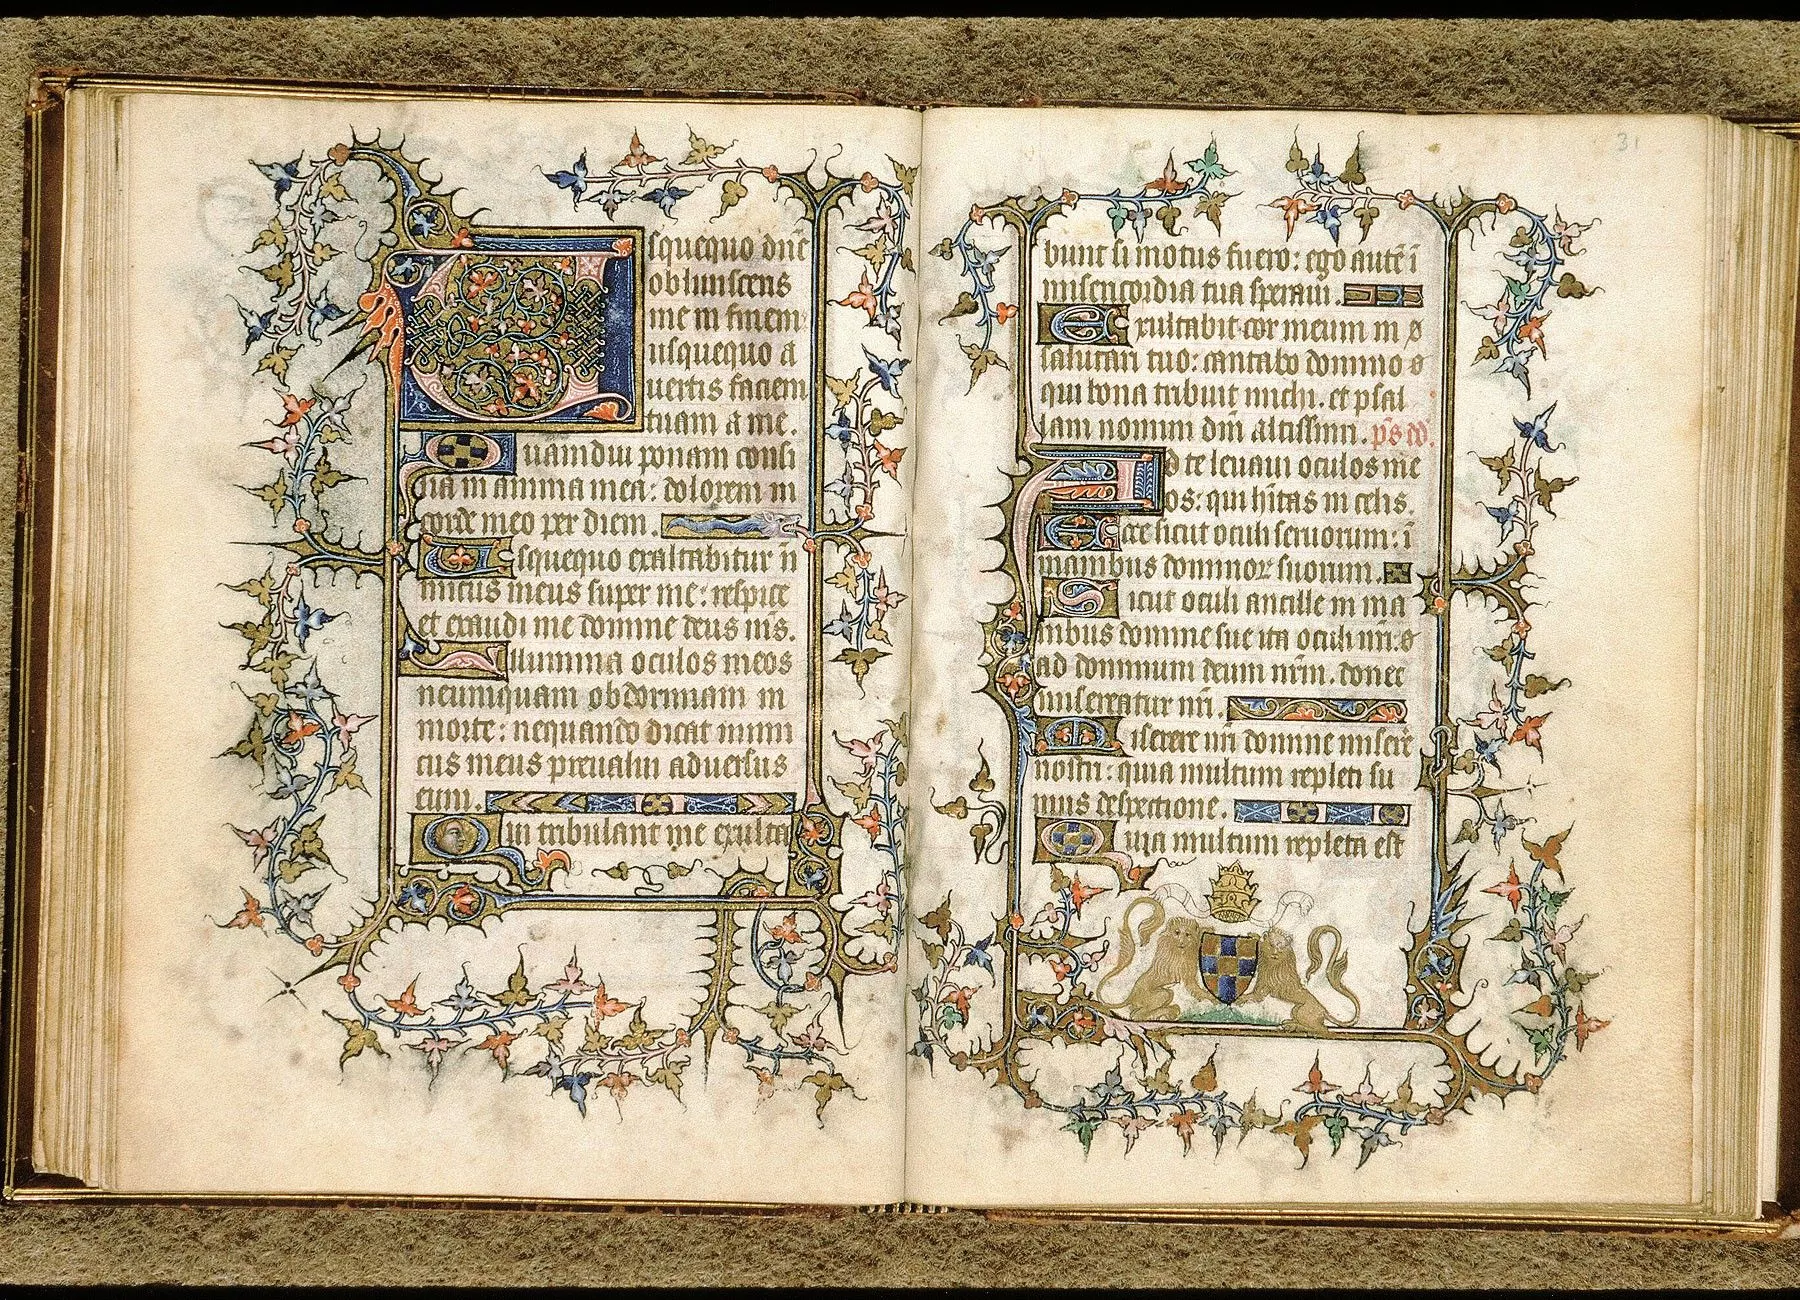 Usquequo dn̄e
obliuisceris
me in finem
usquequo a
uertis faciem
tuam a me.
Quamdiu ponam consi
lia in anima mea: dolorem in
corde meo per diem.
Usquequo exaltabitur in̄
imicus meus super me: respice
et exaudi me domine deus m̄s.
Illumina oculos meos
neumquam obdormiam in
morte: nequando dicat inimi
cus meus preualui aduersus
eum.
Qui tribulant me exulta
31
bunt si motus fuero: ego autē ī
misericordia tua speraui.
Exultabit cor meum in
salutari tuo: cantabo domino
qui bona tribuit michi. et psal
lam nomini dn̄i altissimi. p̄s dd̄.
Ad te leuaui oculos me
os: qui h̄itas in celis.
Ecce sicut oculi seruorum: ī
manibus dominoꝝ suorum.
Sicut oculi ancille in ma
nibus domine sue ita oculi n̄ri:
ad dominum deum nr̄m. donec
misereatur nr̄i.
Miserere nr̄i domine miserere
nostri: quia multum repleti su
mus despectione.
Quia multum repleta est